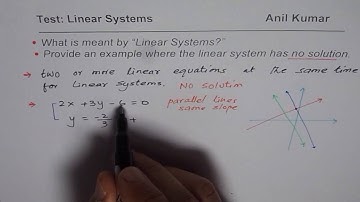 Test: Linear Systems Anil Kumar
• What is meant by "Linear Systems?"
• Provide an example where the linear system has no solution.
→ two or more linear equations at the same time
for Linear systems. No solution
→ 2x + 3y - 6 = 0 parallel lines
y = -2/3 + same slope